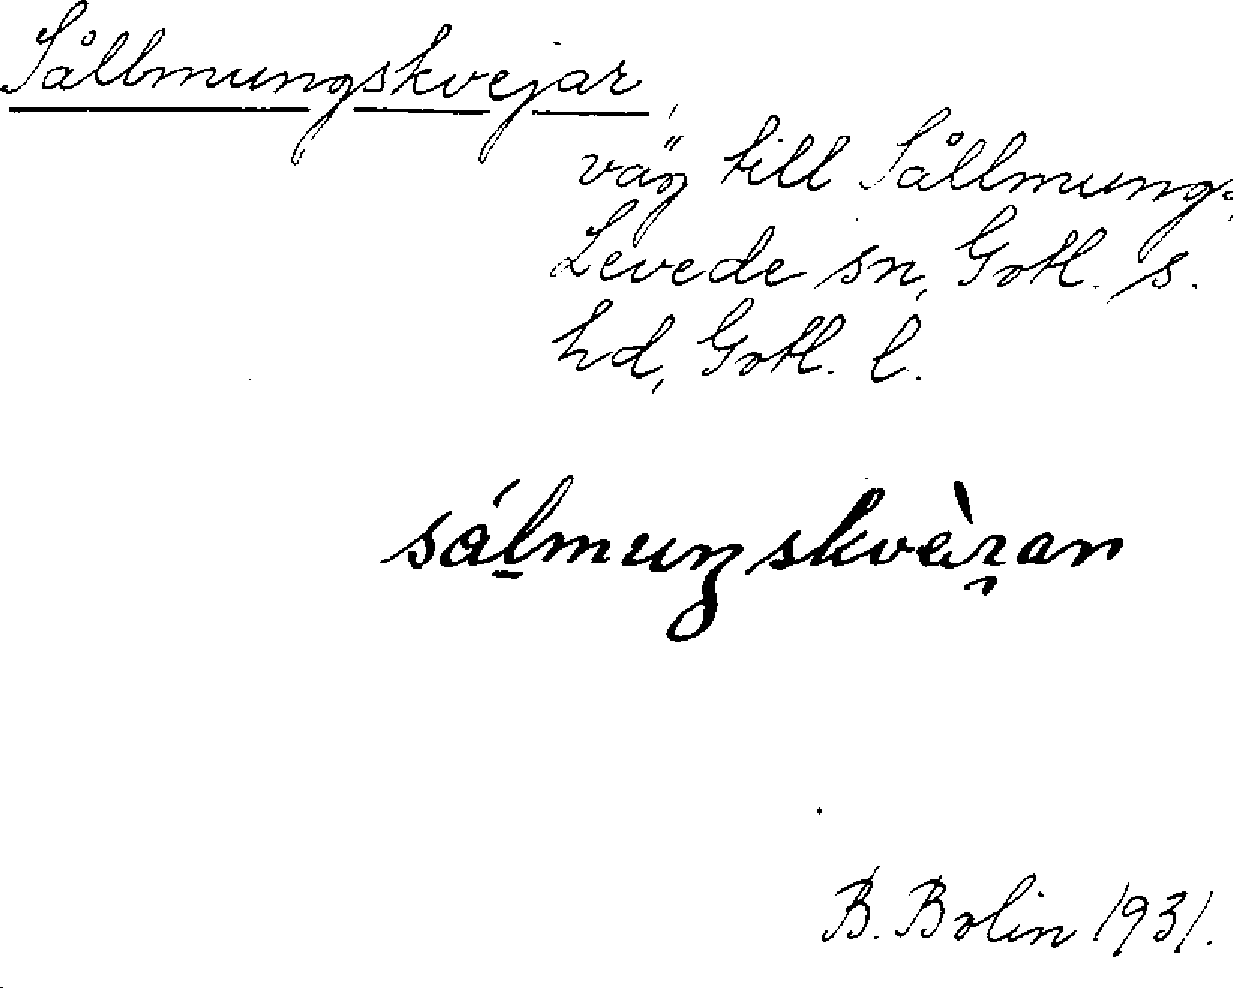 Sållmungskvejar,
väg till Sållmungs,
Levede sn, Gotl. s.
hd, Gotl. l.
B. Bolin 1931.